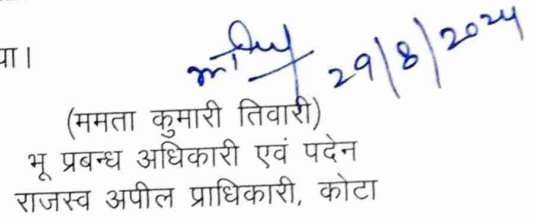 या।
29/8/2024
(ममता कुमारी तिवारी)
भू प्रबन्ध अधिकारी एवं पदेन
राजस्व अपील प्राधिकारी, कोटा